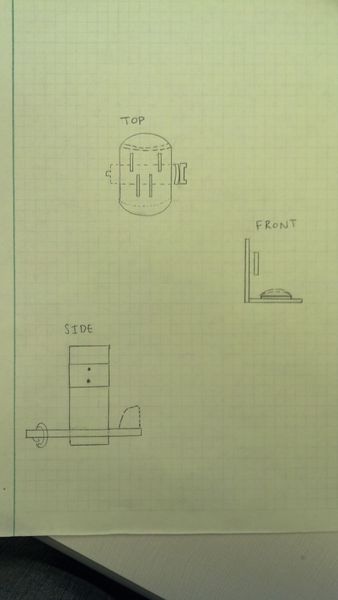 TOP
FRONT
SIDE